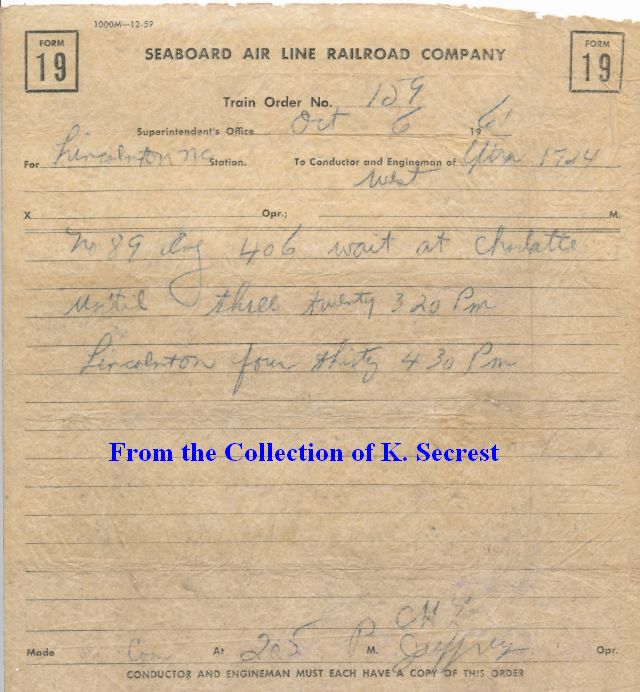 1000M—12-59
FORM 19
SEABOARD AIR LINE RAILROAD COMPANY
FORM 19
Train Order No. 159
Superintendent's Office Oct 6 1961
For Lincolnton NC Station. To Conductor and Engineman of Extra 1724
West
X Opr.; M.
No 89 Eng 406 wait at Charlotte
until three twenty 320 Pm
Lincolnton four thirty 430 Pm
From the Collection of K. Secrest
Made Com At 205 P M. Opr.
CONDUCTOR AND ENGINEMAN MUST EACH HAVE A COPY OF THIS ORDER